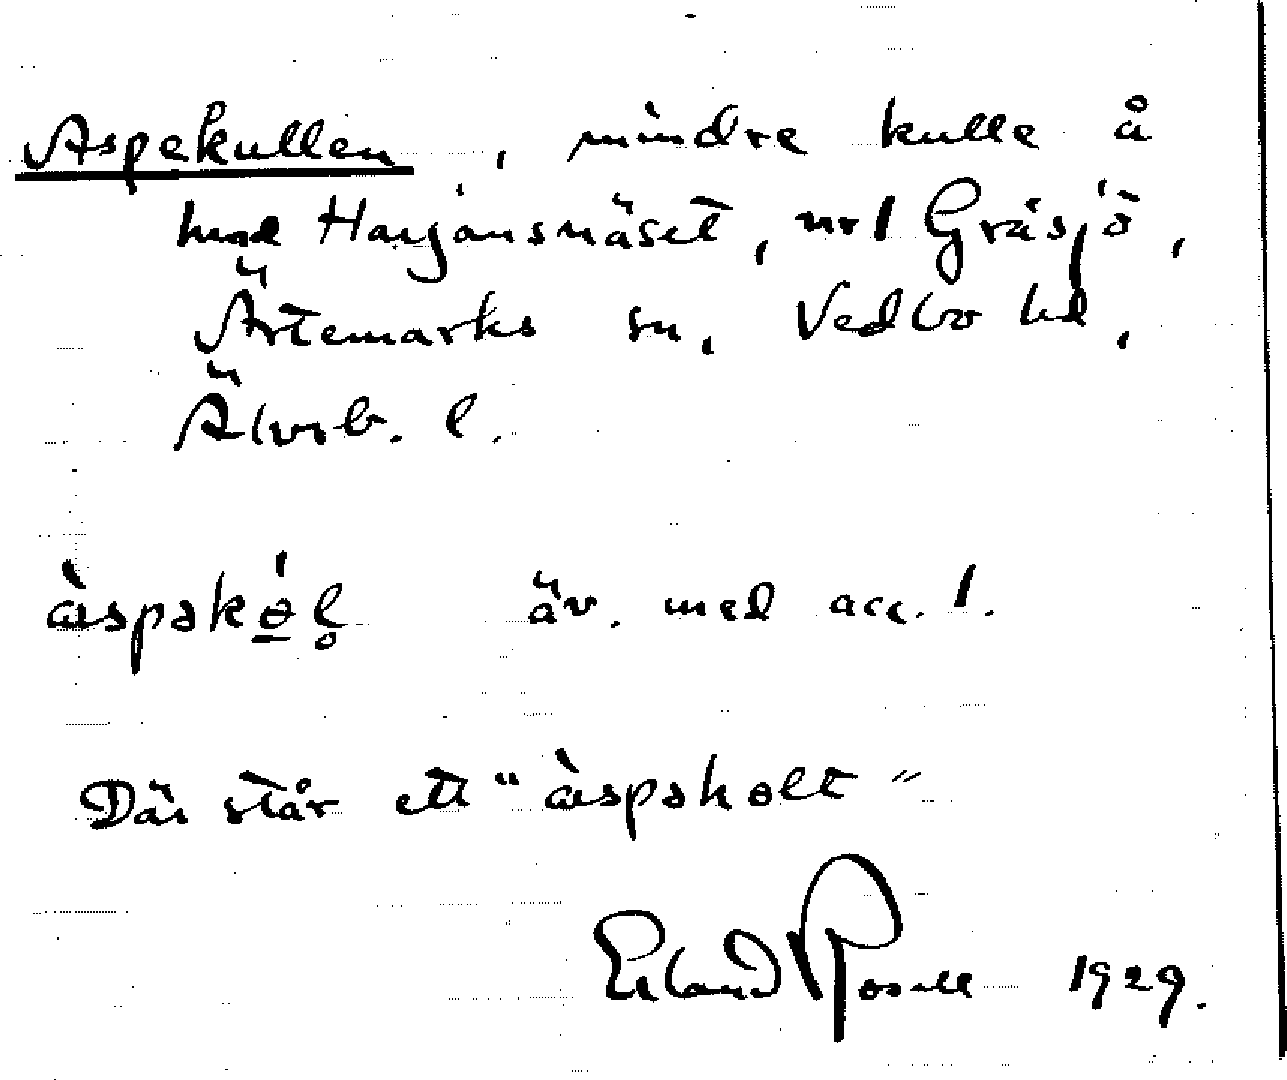 Aspekullen, mindre kulle å
hmd Harjansnäset, nr 1 Gräsjö,
Ärtemarks sn, Vedbo hd,
Älvsb. l.
àspəkǿl̥ äv. med acc. 1.
Där står ett "àspəhølt"
Erland Rosell 1929.